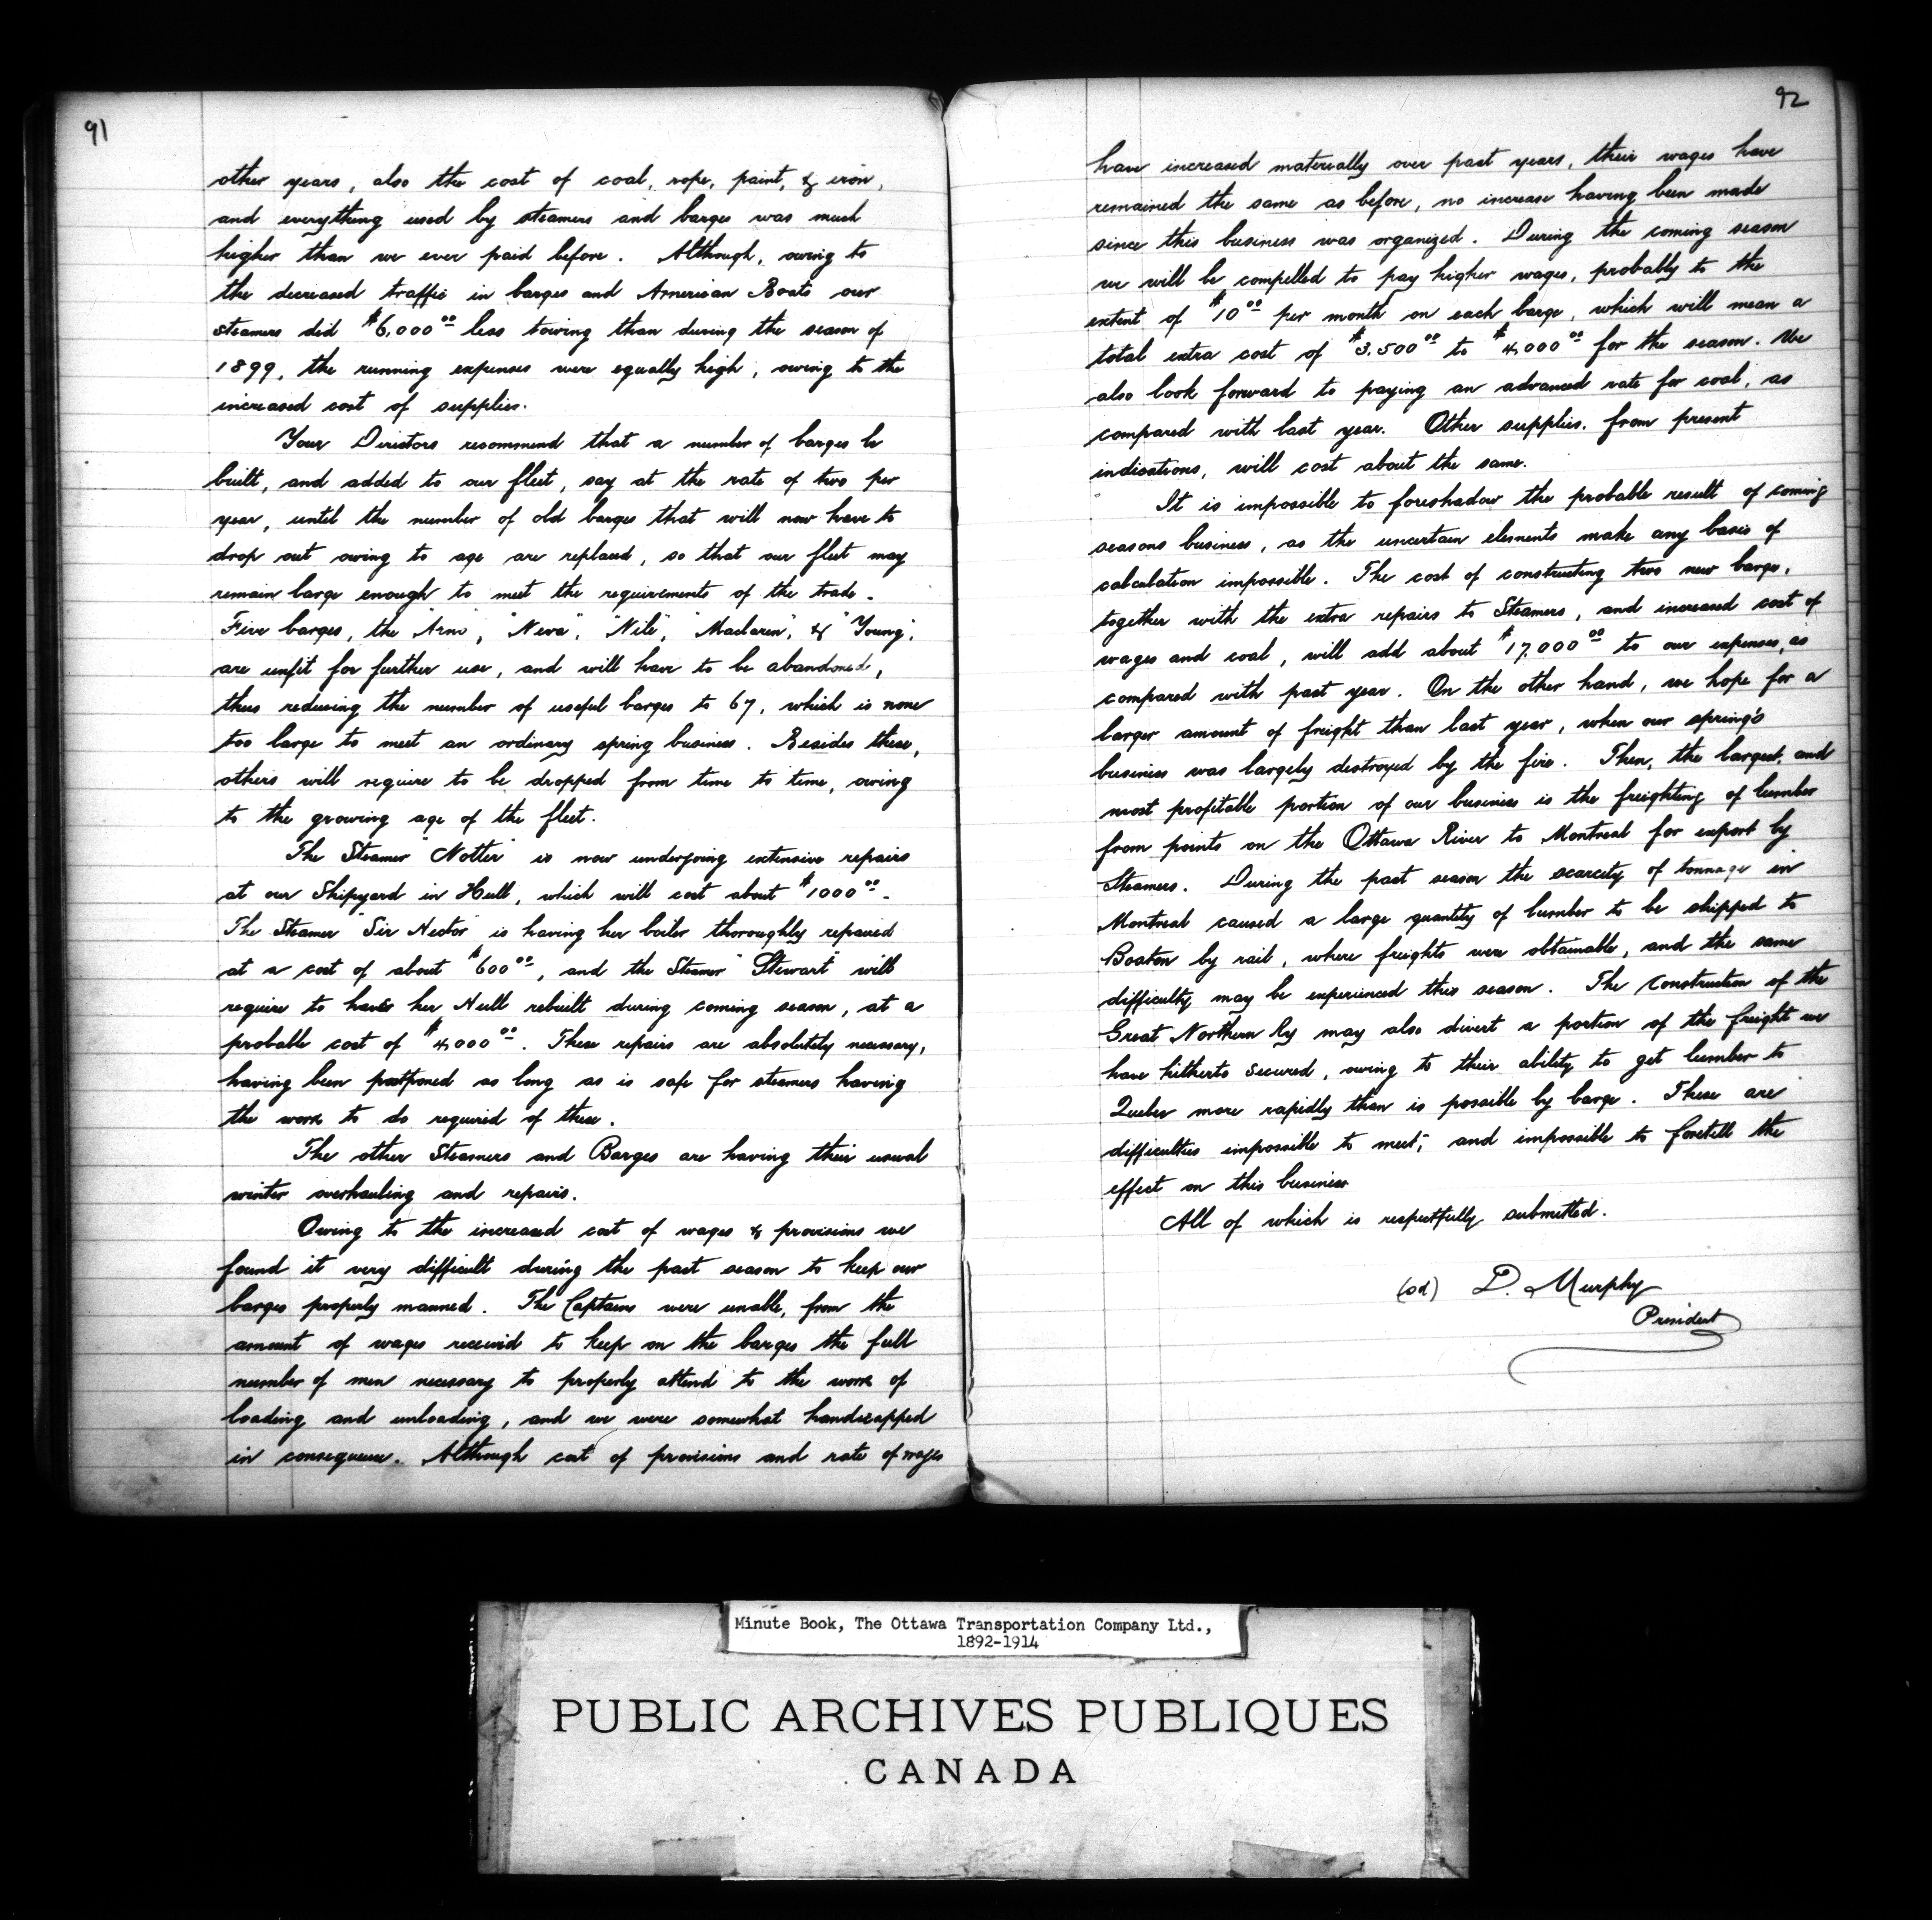 91
other years, also the cost of coal, rope, paint, & iron,
and everything used by steamers and barges was much
higher than we ever paid before. Although, owing to
the decreased traffic in barges and American Boats our
steamers did $6,000 00 less towing than during the season of
1899, the running expenses were equally high, owing to the
increased cost of supplies.
Your Directors recommend that a number of barges be
built, and added to our fleet, say at the rate of two per
year, until the number of old barges that will now have to
drop out owing to age are replaced, so that our fleet may
remain large enough to meet the requirements of the trade.
Five barges, the "Arno", "Neva", "Nile", "Maclaren", & "Young",
are unfit for further use, and will have to be abandoned,
thus reducing the number of useful barges to 67, which is none
too large to meet an ordinary spring business. Besides these,
others will require to be dropped from time to time, owing
to the growing age of the fleet.
The Steamer "Notter" is now undergoing extensive repairs
at our Shipyard in Hull, which will cost about $1000 00.
The Steamer "Sir Hector" is having her boiler thoroughly repaired
at a cost of about $600 00, and the Steamer "Stewart" will
require to have her Hull rebuilt during coming season, at a
probable cost of $4,000 00. These repairs are absolutely necessary,
having been postponed as long as is safe for steamers having
the work to do required of these.
The other Steamers and Barges are having their usual
winter overhauling and repairs.
Owing to the increased cost of wages & provisions we
found it very difficult during the past season to keep our
barges properly manned. The Captains were unable, from the
amount of wages received to keep on the barges the full
number of men necessary to properly attend to the work of
loading and unloading, and we were somewhat handicapped
in consequence. Although cost of provisions and rate of wages
92
have increased materially over past years, their wages have
remained the same as before, no increase having been made
since this business was organized. During the coming season
we will be compelled to pay higher wages, probably to the
extent of $10 00 per month on each barge, which will mean a
total extra cost of $3,500 00 to $4,000 00 for the season. We
also look forward to paying an advanced rate for coal, as
compared with last year. Other supplies, from present
indications, will cost about the same.
It is impossible to foreshadow the probable result of coming
seasons business, as the uncertain elements make any basis of
calculation impossible. The cost of constructing two new barges,
together with the extra repairs to Steamers, and increased cost of
wages and coal, will add about $17,000 00 to our expenses, as
compared with past year. On the other hand, we hope for a
larger amount of freight than last year, when our spring's
business was largely destroyed by the fire. Then, the largest, and
most profitable portion of our business is the freighting of lumber
from points on the Ottawa River to Montreal for export by
Steamers. During the past season the scarcity of tonnage in
Montreal caused a large quantity of lumber to be shipped to
Boston by rail, where freights were obtainable, and the same
difficulty may be experienced this season. The Construction of the
Great Northern Ry may also divert a portion of the freight we
have hitherto secured, owing to their ability to get lumber to
Quebec more rapidly than is possible by barge. These are
difficulties impossible to meet, and impossible to foretell the
effect on this business
All of which is respectfully submitted.
(sd) D. Murphy
President
Minute Book, The Ottawa Transportation Company Ltd.,
1892-1914
PUBLIC ARCHIVES PUBLIQUES
CANADA